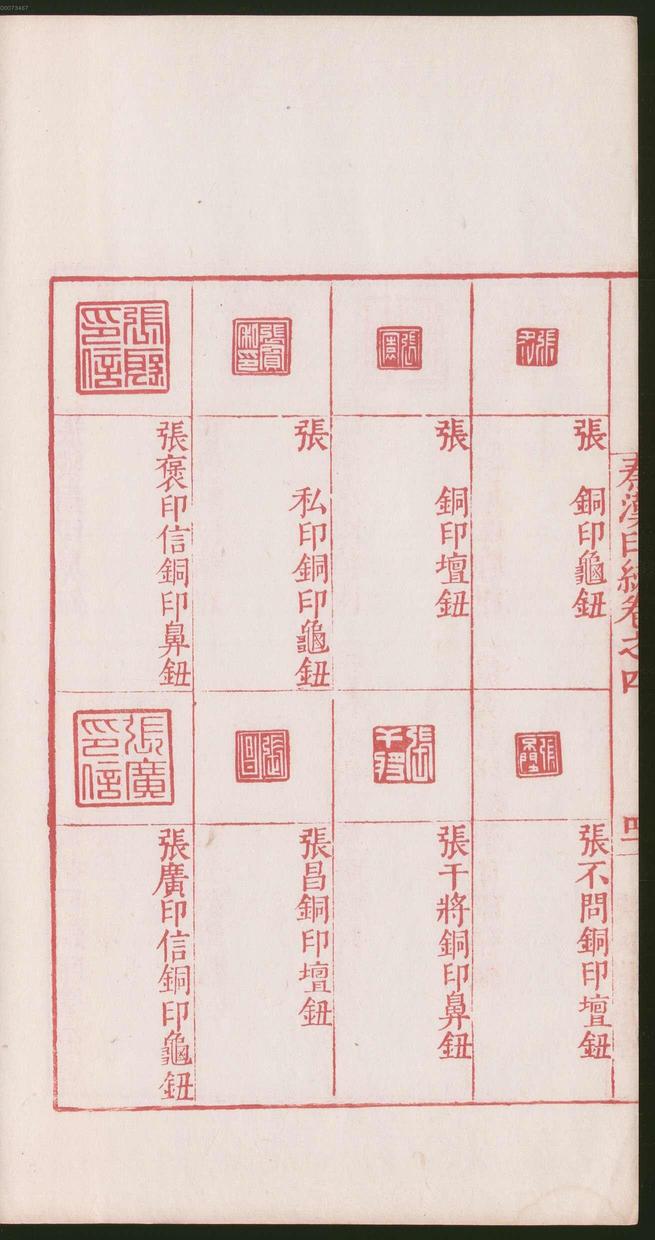 00073467
秦漢印統卷之四
張　銅印龜鈕
張不問銅印壇鈕
張　銅印壇鈕
張干將銅印鼻鈕
張　私印銅印龜鈕
張昌銅印壇鈕
張褒印信銅印鼻鈕
張廣印信銅印龜鈕